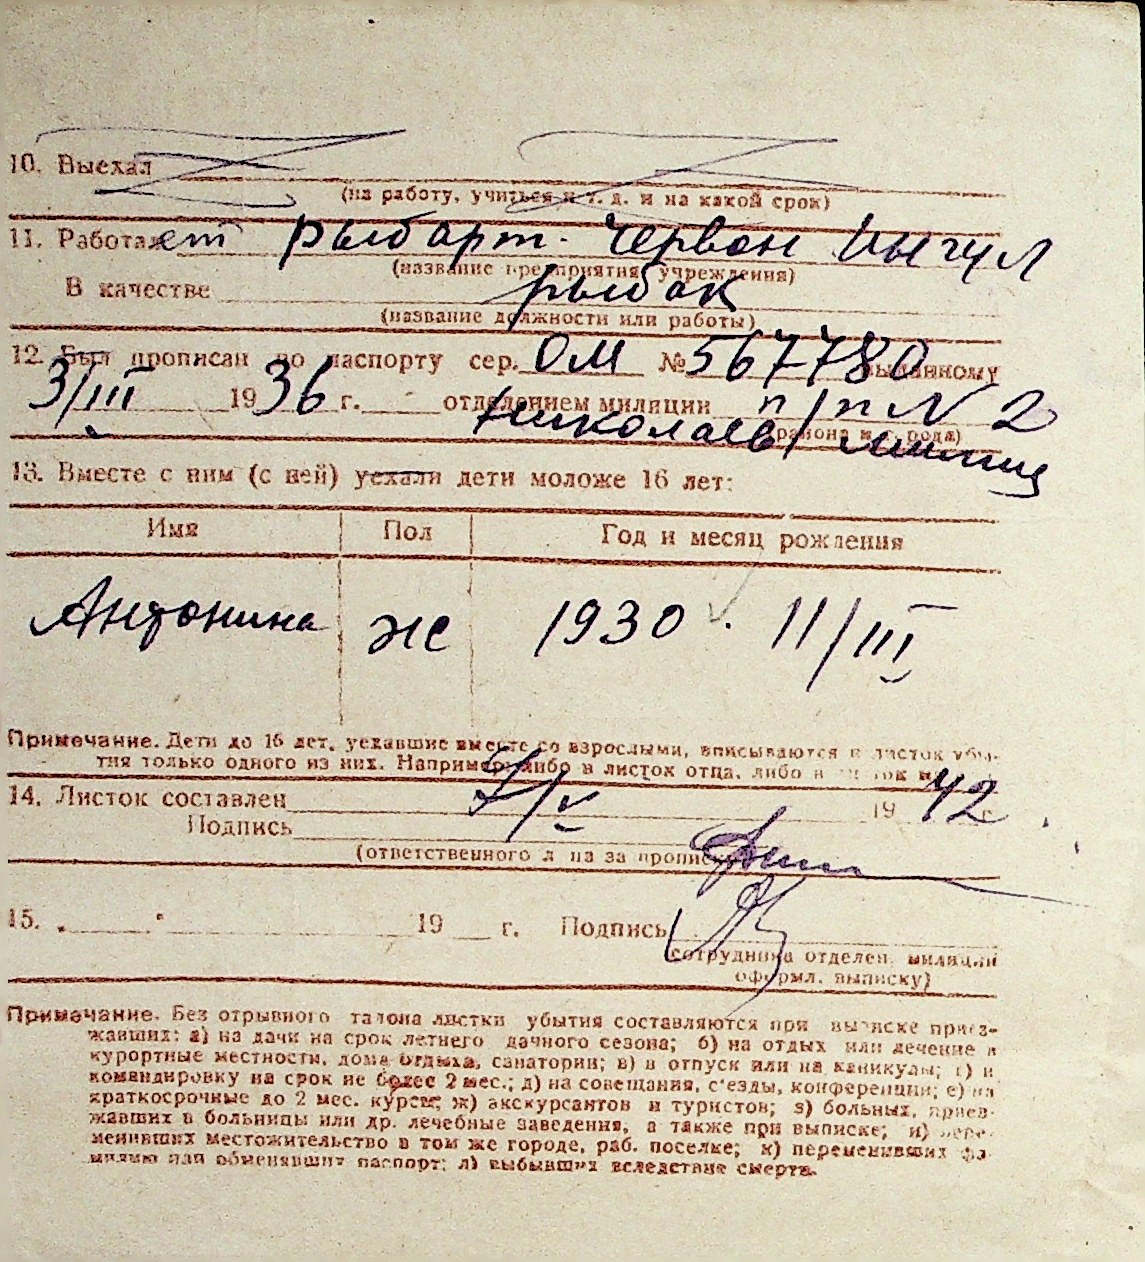 10. Выехал
(на работу, учиться и т. д. и на какой срок)
11. Работает рыбарт. Червон Ингул
(название предприятия, учреждения)
В качестве рыбак
(название должности или работы)
12. Был прописан по паспорту сер. ОМ № 567780 выданному
3/III 1936 г. отделением милиции п/п N 2
Николаев (района и города) милиц
13. Вместе с ним (с ней) уехали дети моложе 16 лет:
Имя Пол Год и месяц рождения
Антонина ж 1930. 11/III
Примечание. Дети до 16 лет, уехавшие вместе со взрослыми, вписываются в листок убы-
тия только одного из них. Например, либо в листок отца, либо в листок
14. Листок составлен /V 1942 г.
Подпись
(ответственного лица за прописку)
15. 19 г. Подпись
(сотрудника отделен. милиции
оформл. выписку)
Примечание. Без отрывного талона листки убытия составляются при выписке приез-
жавших: а) на дачи на срок летнего дачного сезона; б) на отдых или лечение в
курортные местности, дома отдыха, санатории; в) в отпуск или на каникулы; г) в
командировку на срок не более 2 мес.; д) на совещания, с'езды, конференции; е) на
краткосрочные до 2 мес. курсы; ж) экскурсантов и туристов; з) больных, приез-
жавших в больницы или др. лечебные заведения, а также при выписке; и) пере-
менивших местожительство в том же городе, раб. поселке; к) переменивших фа-
милию или обменявших паспорт; л) выбывших вследствие смерти.